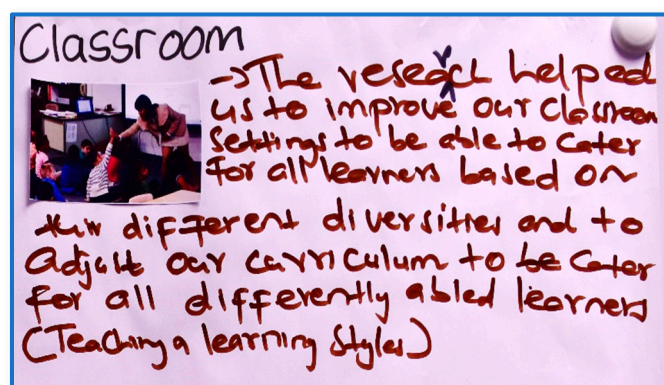 Classroom
→ The research helped
us to improve our classroom
settings to be able to cater
for all learners based on
their different diversities and to
Adjust our curriculum to be cater
for all differently abled learners
(Teaching a learning styles)